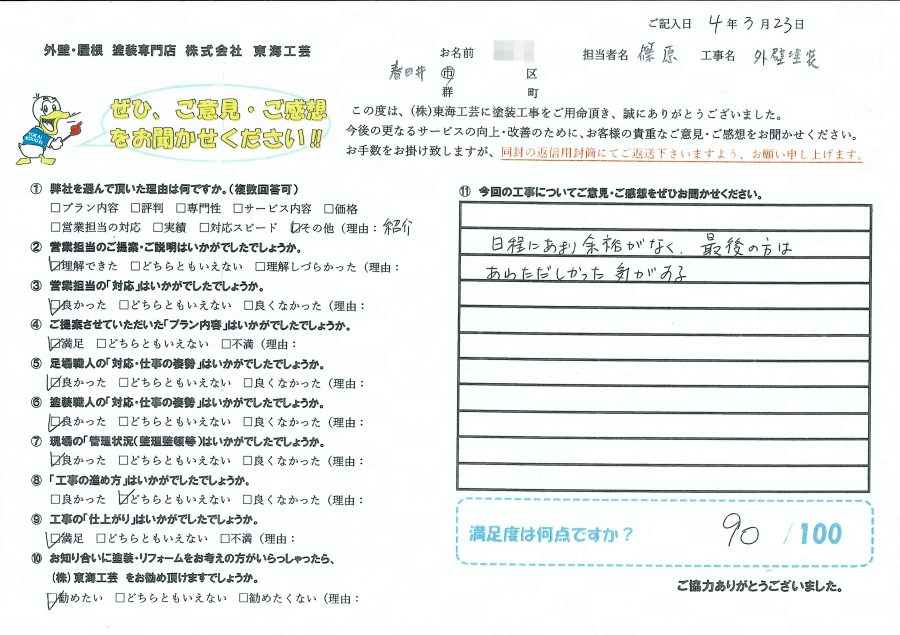 ご記入日 4年3月23日
外壁・屋根 塗装専門店 株式会社 東海工芸
お名前
担当者名 篠原 工事名 外壁塗装
春日井 市 区
郡 町
ぜひ、ご意見・ご感想
をお聞かせください!!
この度は、(株)東海工芸に塗装工事をご用命頂き、誠にありがとうございました。
今後の更なるサービスの向上・改善のために、お客様の貴重なご意見・ご感想をお聞かせください。
お手数をお掛け致しますが、同封の返信用封筒にてご返送下さいますよう、お願い申し上げます。
① 弊社を選んで頂いた理由は何ですか。(複数回答可)
□プラン内容 □評判 □専門性 □サービス内容 □価格
□営業担当の対応 □実績 □対応スピード ☑その他(理由:紹介
② 営業担当のご提案・ご説明はいかがでしたでしょうか。
☑理解できた □どちらともいえない □理解しづらかった(理由:
③ 営業担当の「対応」はいかがでしたでしょうか。
☑良かった □どちらともいえない □良くなかった(理由:
④ ご提案させていただいた「プラン内容」はいかがでしたでしょうか。
☑満足 □どちらともいえない □不満(理由:
⑤ 足場職人の「対応・仕事の姿勢」はいかがでしたでしょうか。
☑良かった □どちらともいえない □良くなかった(理由:
⑥ 塗装職人の「対応・仕事の姿勢」はいかがでしたでしょうか。
☑良かった □どちらともいえない □良くなかった(理由:
⑦ 現場の「管理状況(整理整頓等)はいかがでしたでしょうか。
☑良かった □どちらともいえない □良くなかった(理由:
⑧ 「工事の進め方」はいかがでしたでしょうか。
□良かった ☑どちらともいえない □良くなかった(理由:
⑨ 工事の「仕上がり」はいかがでしたでしょうか。
☑満足 □どちらともいえない □不満(理由:
⑩ お知り合いに塗装・リフォームをお考えの方がいらっしゃったら、
(株)東海工芸 をお勧め頂けますでしょうか。
☑勧めたい □どちらともいえない □勧めたくない(理由:
⑪ 今回の工事についてご意見・ご感想をぜひお聞かせください。
日程にあまり余裕がなく、最後の方は
あわただしかった気がする
満足度は何点ですか? 90 /100
ご協力ありがとうございました。